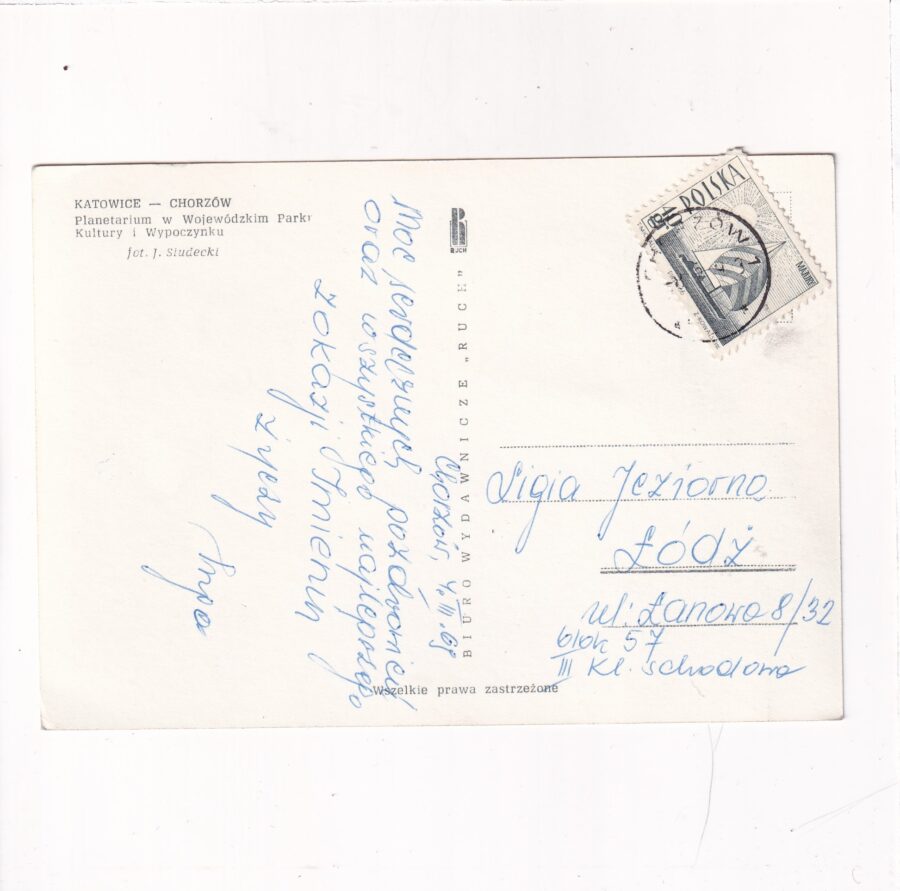 KATOWICE — CHORZÓW
Planetarium w Wojewódzkim Parku
Kultury i Wypoczynku
fot. J. Siudecki
Chorzów, 4. III. 69
Moc serdecznych pozdrowień
oraz wszystkiego najlepszego
z okazji Imienin
życzy
BIURO WYDAWNICZE „RUCH"
RUCH
Wszelkie prawa zastrzeżone
POLSKA
MAZURY
CHORZÓW 1
Ligia Jeziorna
Łódź
ul. Łanowa 8/32
blok 57
III kl. schodowa